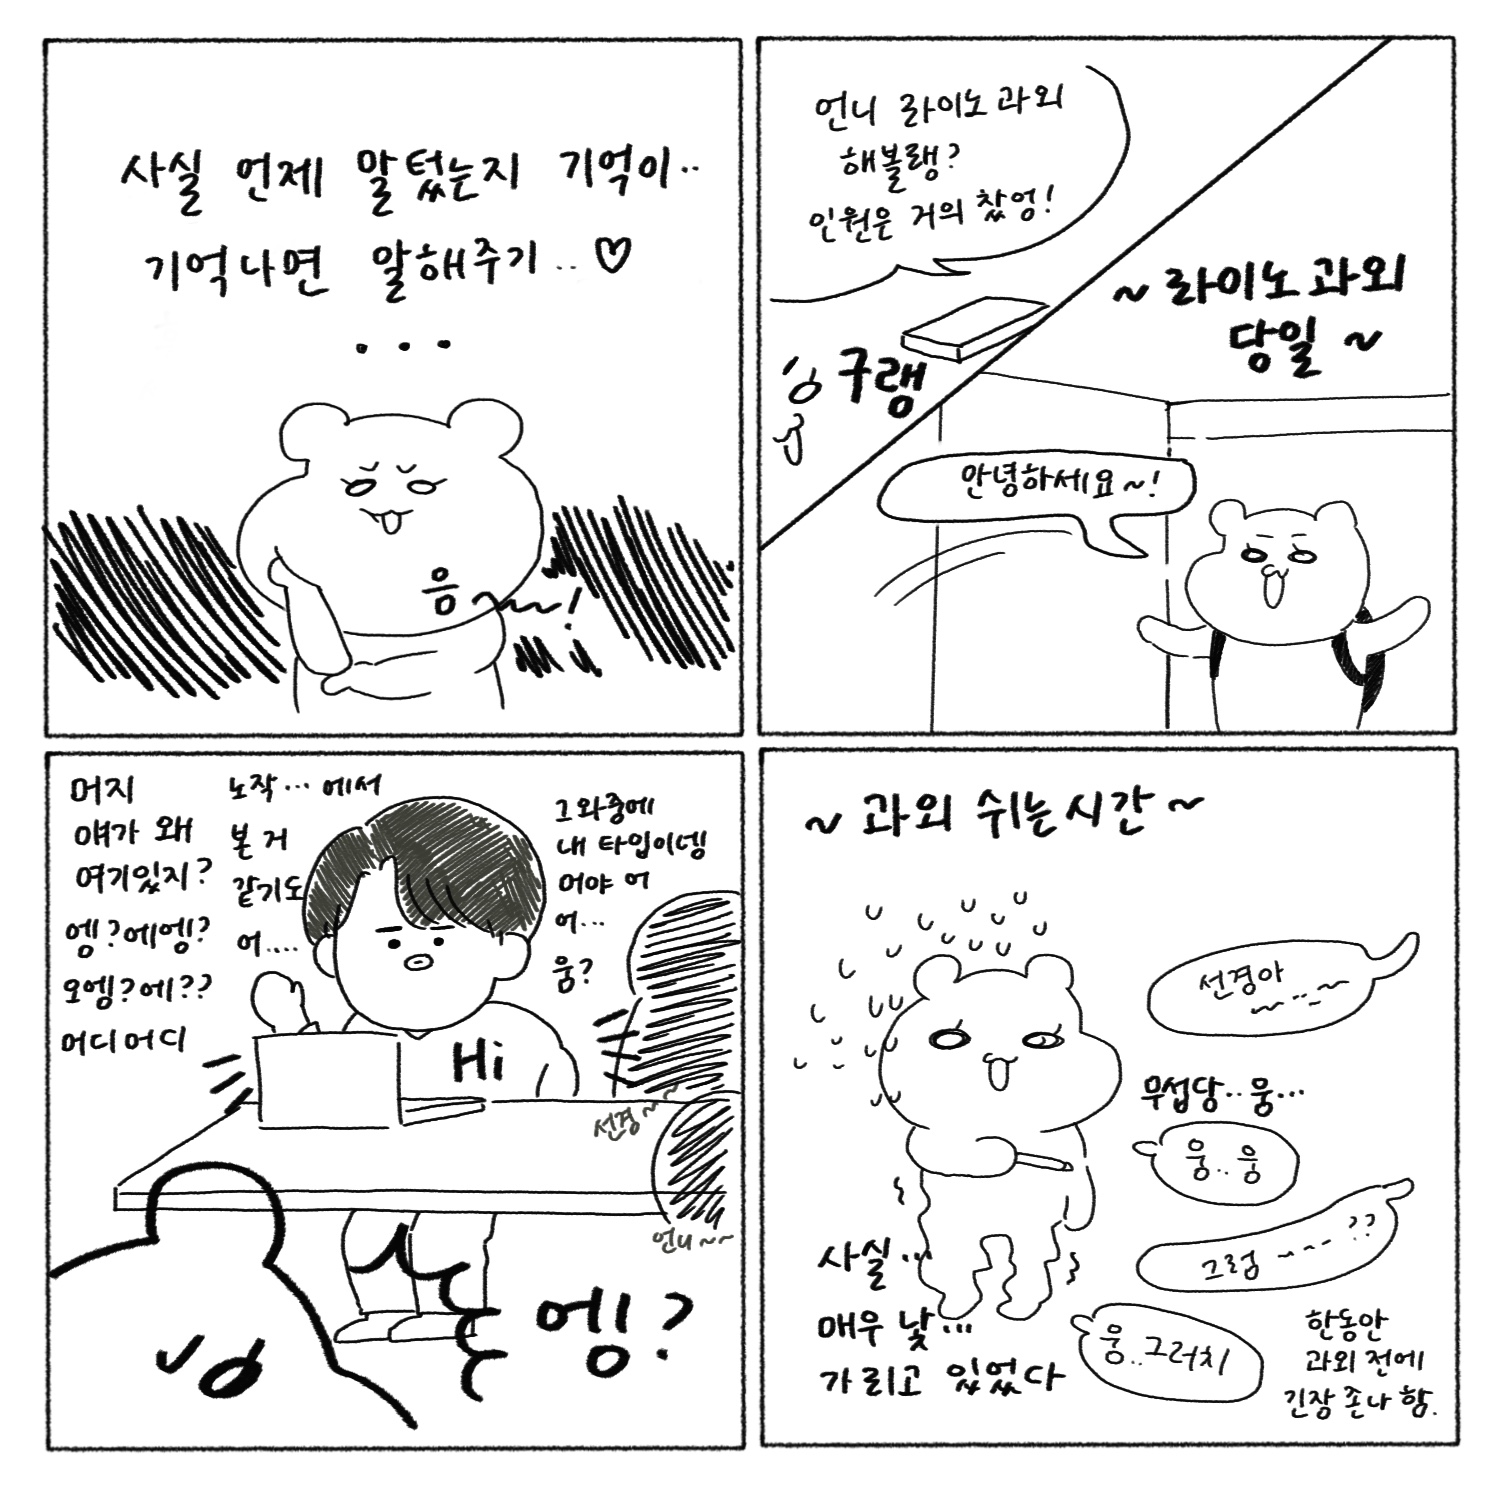 사실 언제 말텄는지 기억이..
기억나면 말해주기... ♡
...
음~~~!
언니 라이노 과외
해볼랭?
인원은 거의 찼엉!
구랭
~ 라이노 과외
당일 ~
안녕하세요~!
머지
얘가 왜
여기있지?
엥?에엥?
오엥?에??
어디어디
노작... 에서
본 거
같기도
어....
그와중에
내 타입이넹
머야 어
어...
웅?
Hi
선경~~
언니~~
엥?
~ 과외 쉬는시간 ~
선경아
~..~~
무섭당..웅...
웅..웅
그럼 ~~~??
웅..그러치
사실...
매우 낯...
가리고 있었다
한동안
과외 전에
긴장 존나 함.